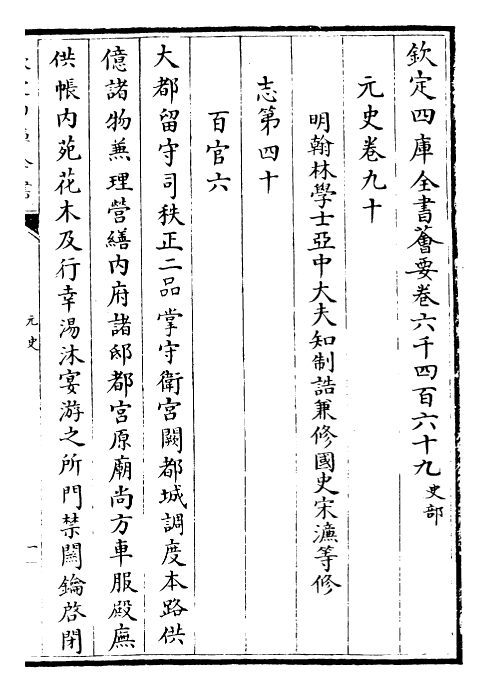 欽定四庫全書薈要卷六千四百六十九史部
元史卷九十
明翰林學士亞中大夫知制誥兼修國史宋濂等修
志第四十
百官六
大都留守司秩正二品掌守衛宮闕都城調度本路供
億諸物兼理營繕內府諸邸都宮原廟尚方車服殿廡
供帳內苑花木及行幸湯沐宴游之所門禁關鑰啓閉
元史
一